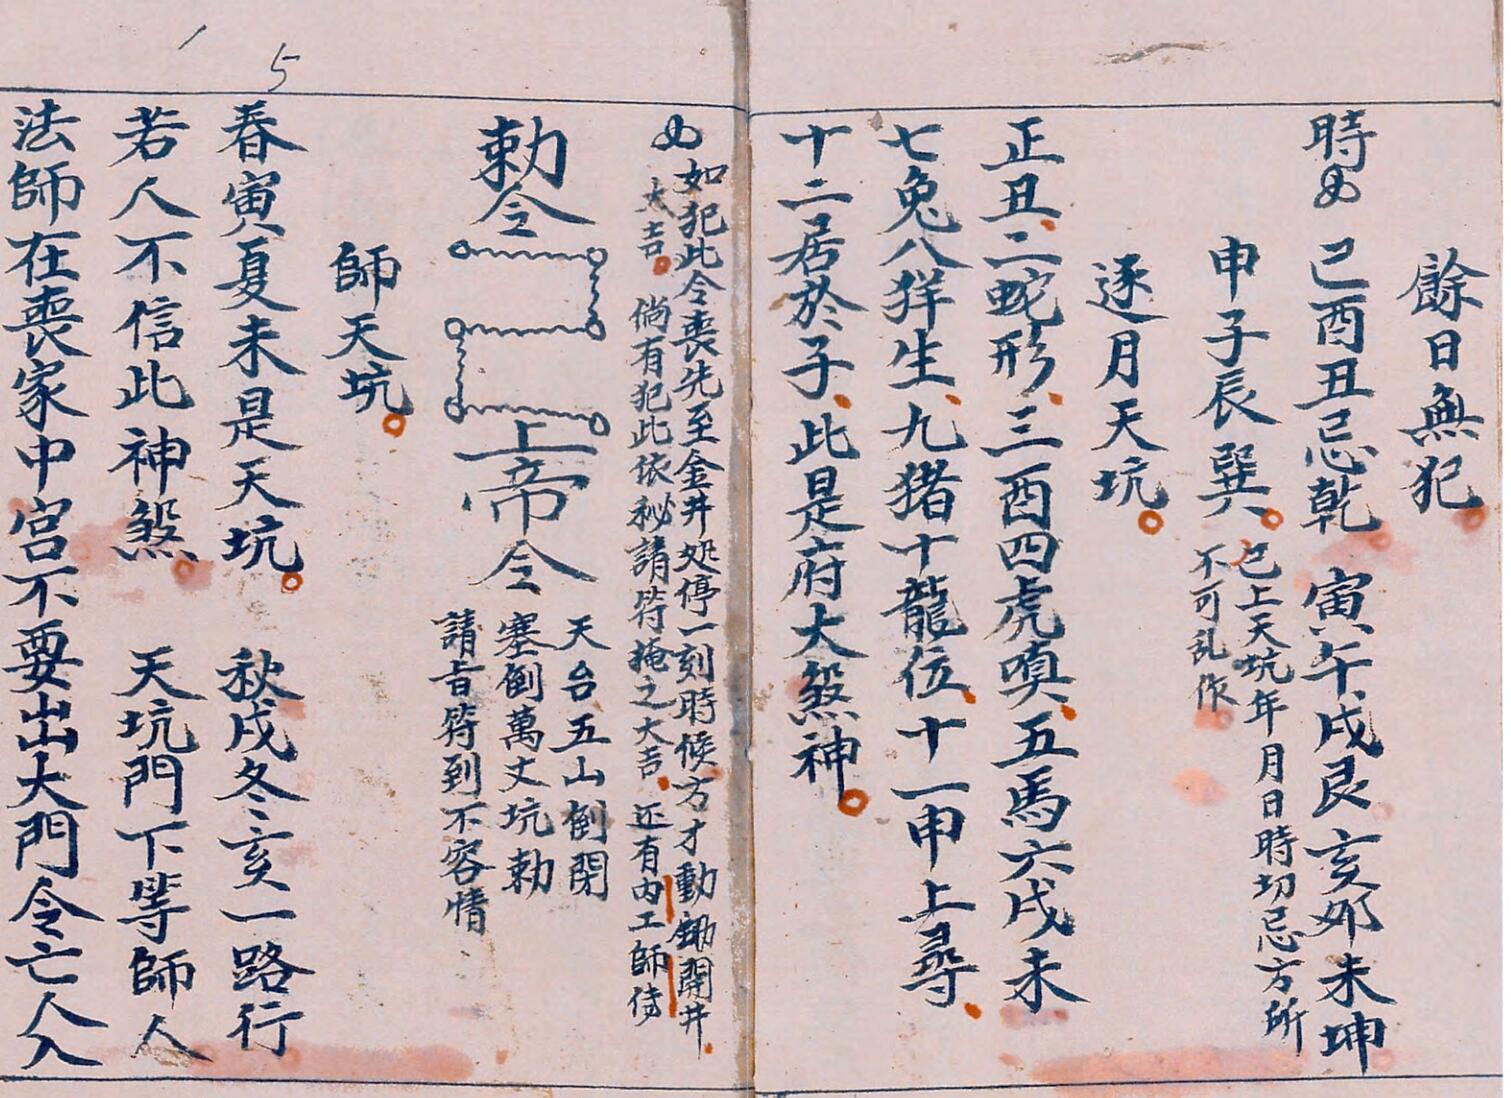 餘日無犯
時 巳酉丑忌乾 寅午戌艮 亥卯未坤
申子辰巽 已上天坑年月日時切忌方所
不可乱作
逐月天坑
正丑二蛇形三酉四虎嗔五馬六戌未
七兔八羊生九猪十龍位十一申上尋
十二居於子此是府大煞神
如犯此令喪先至金井处停一刻時候方才動鋤開井
大吉 倘有犯此依秘請符掩之大吉 还有內工師侍
勅令 上帝令
天台五山倒閉
塞倒萬丈坑勅
請旨符到不容情
師天坑
春寅夏未是天坑 秋戌冬亥一路行
若人不信此神煞 天坑門下等師人
法師在喪家中宮不要出大門令亡人入
15